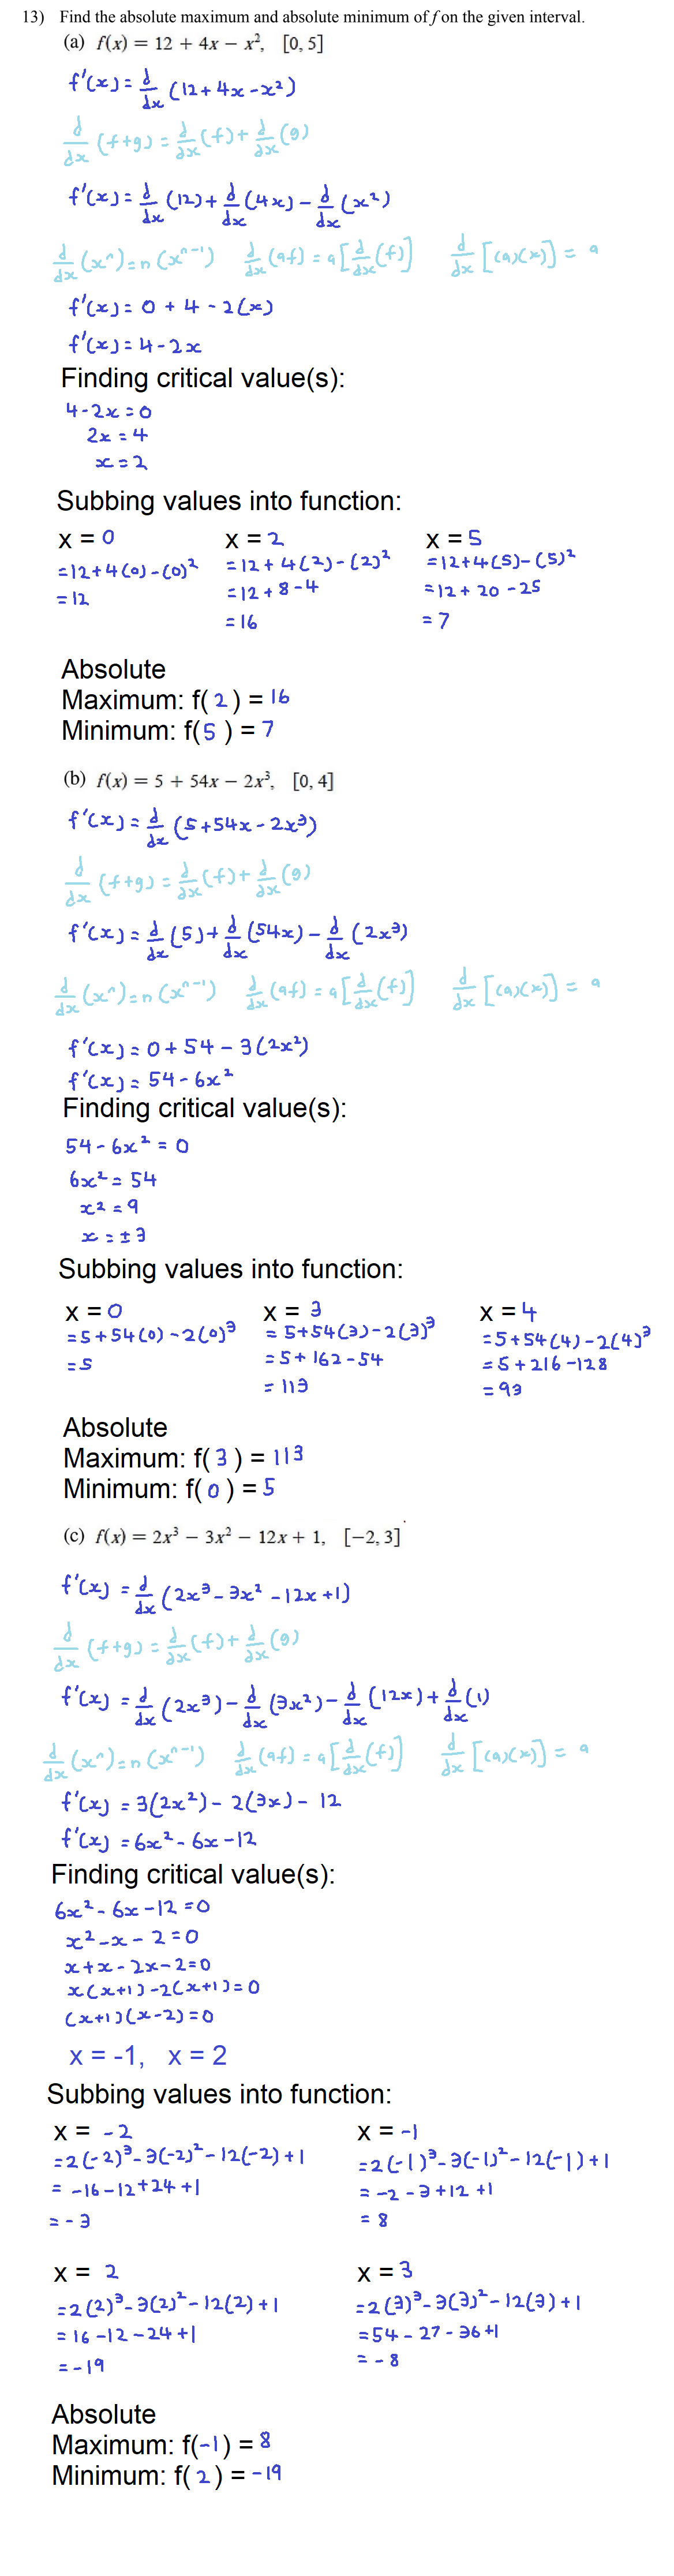 13) Find the absolute maximum and absolute minimum of f on the given interval.
(a) f(x) = 12 + 4x − x², [0, 5]
f'(x) = d/dx (12 + 4x - x²)
d/dx (f+g) = d/dx (f) + d/dx (g)
f'(x) = d/dx (12) + d/dx (4x) - d/dx (x²)
d/dx (xⁿ) = n (xⁿ⁻¹) d/dx (af) = a[d/dx (f)] d/dx [(a)(x)] = a
f'(x) = 0 + 4 - 2(x)
f'(x) = 4 - 2x
Finding critical value(s):
4 - 2x = 0
2x = 4
x = 2
Subbing values into function:
x = 0 x = 2 x = 5
= 12 + 4(0) - (0)² = 12 + 4(2) - (2)² = 12 + 4(5) - (5)²
= 12 = 12 + 8 - 4 = 12 + 20 - 25
= 16 = 7
Absolute
Maximum: f( 2 ) = 16
Minimum: f( 5 ) = 7
(b) f(x) = 5 + 54x − 2x³, [0, 4]
f'(x) = d/dx (5 + 54x - 2x³)
d/dx (f+g) = d/dx (f) + d/dx (g)
f'(x) = d/dx (5) + d/dx (54x) - d/dx (2x³)
d/dx (xⁿ) = n (xⁿ⁻¹) d/dx (af) = a[d/dx (f)] d/dx [(a)(x)] = a
f'(x) = 0 + 54 - 3(2x²)
f'(x) = 54 - 6x²
Finding critical value(s):
54 - 6x² = 0
6x² = 54
x² = 9
x = ±3
Subbing values into function:
x = 0 x = 3 x = 4
= 5 + 54(0) - 2(0)³ = 5 + 54(3) - 2(3)³ = 5 + 54(4) - 2(4)³
= 5 = 5 + 162 - 54 = 5 + 216 - 128
= 113 = 93
Absolute
Maximum: f( 3 ) = 113
Minimum: f( 0 ) = 5
(c) f(x) = 2x³ − 3x² − 12x + 1, [−2, 3]
f'(x) = d/dx (2x³ - 3x² - 12x + 1)
d/dx (f+g) = d/dx (f) + d/dx (g)
f'(x) = d/dx (2x³) - d/dx (3x²) - d/dx (12x) + d/dx (1)
d/dx (xⁿ) = n (xⁿ⁻¹) d/dx (af) = a[d/dx (f)] d/dx [(a)(x)] = a
f'(x) = 3(2x²) - 2(3x) - 12
f'(x) = 6x² - 6x - 12
Finding critical value(s):
6x² - 6x - 12 = 0
x² - x - 2 = 0
x + x - 2x - 2 = 0
x(x+1) - 2(x+1) = 0
(x+1)(x-2) = 0
x = -1, x = 2
Subbing values into function:
x = -2 x = -1
= 2(-2)³ - 3(-2)² - 12(-2) + 1 = 2(-1)³ - 3(-1)² - 12(-1) + 1
= -16 - 12 + 24 + 1 = -2 - 3 + 12 + 1
= -3 = 8
x = 2 x = 3
= 2(2)³ - 3(2)² - 12(2) + 1 = 2(3)³ - 3(3)² - 12(3) + 1
= 16 - 12 - 24 + 1 = 54 - 27 - 36 + 1
= -19 = -8
Absolute
Maximum: f(-1) = 8
Minimum: f( 2 ) = -19